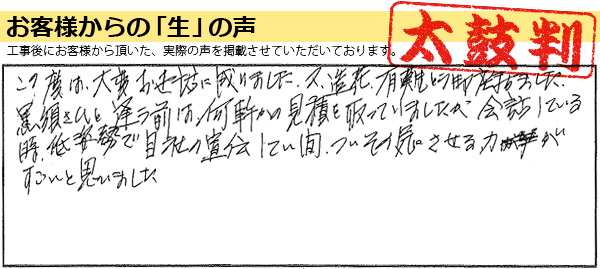 お客様からの「生」の声
工事後にお客様から頂いた、実際の声を掲載させていただいております。
太鼓判
この度は、大変お世話に成りました。又、造花、有難とう御座いました。
黒須さんと逢う前は、何軒かの見積を取っていましたが会話している
時、低姿勢で自社の宣伝している間、ついその気にさせる力が
すごいと思いました